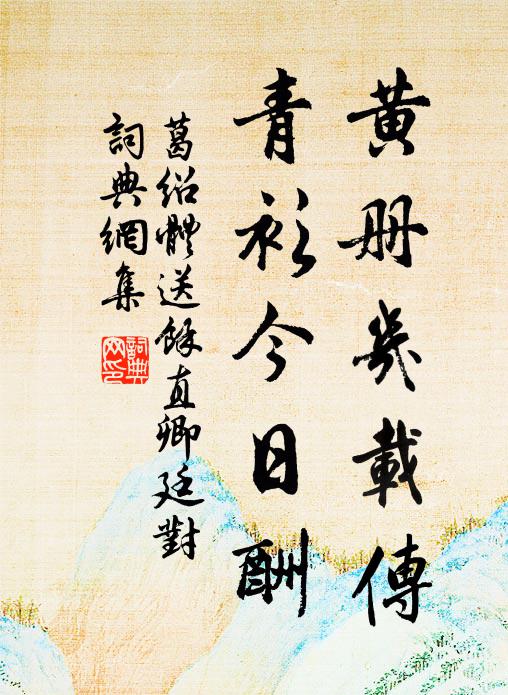 黃册幾載傳
青衫今日酬
葛紹體送餘直卿廷對
詞典網集
詞典網印